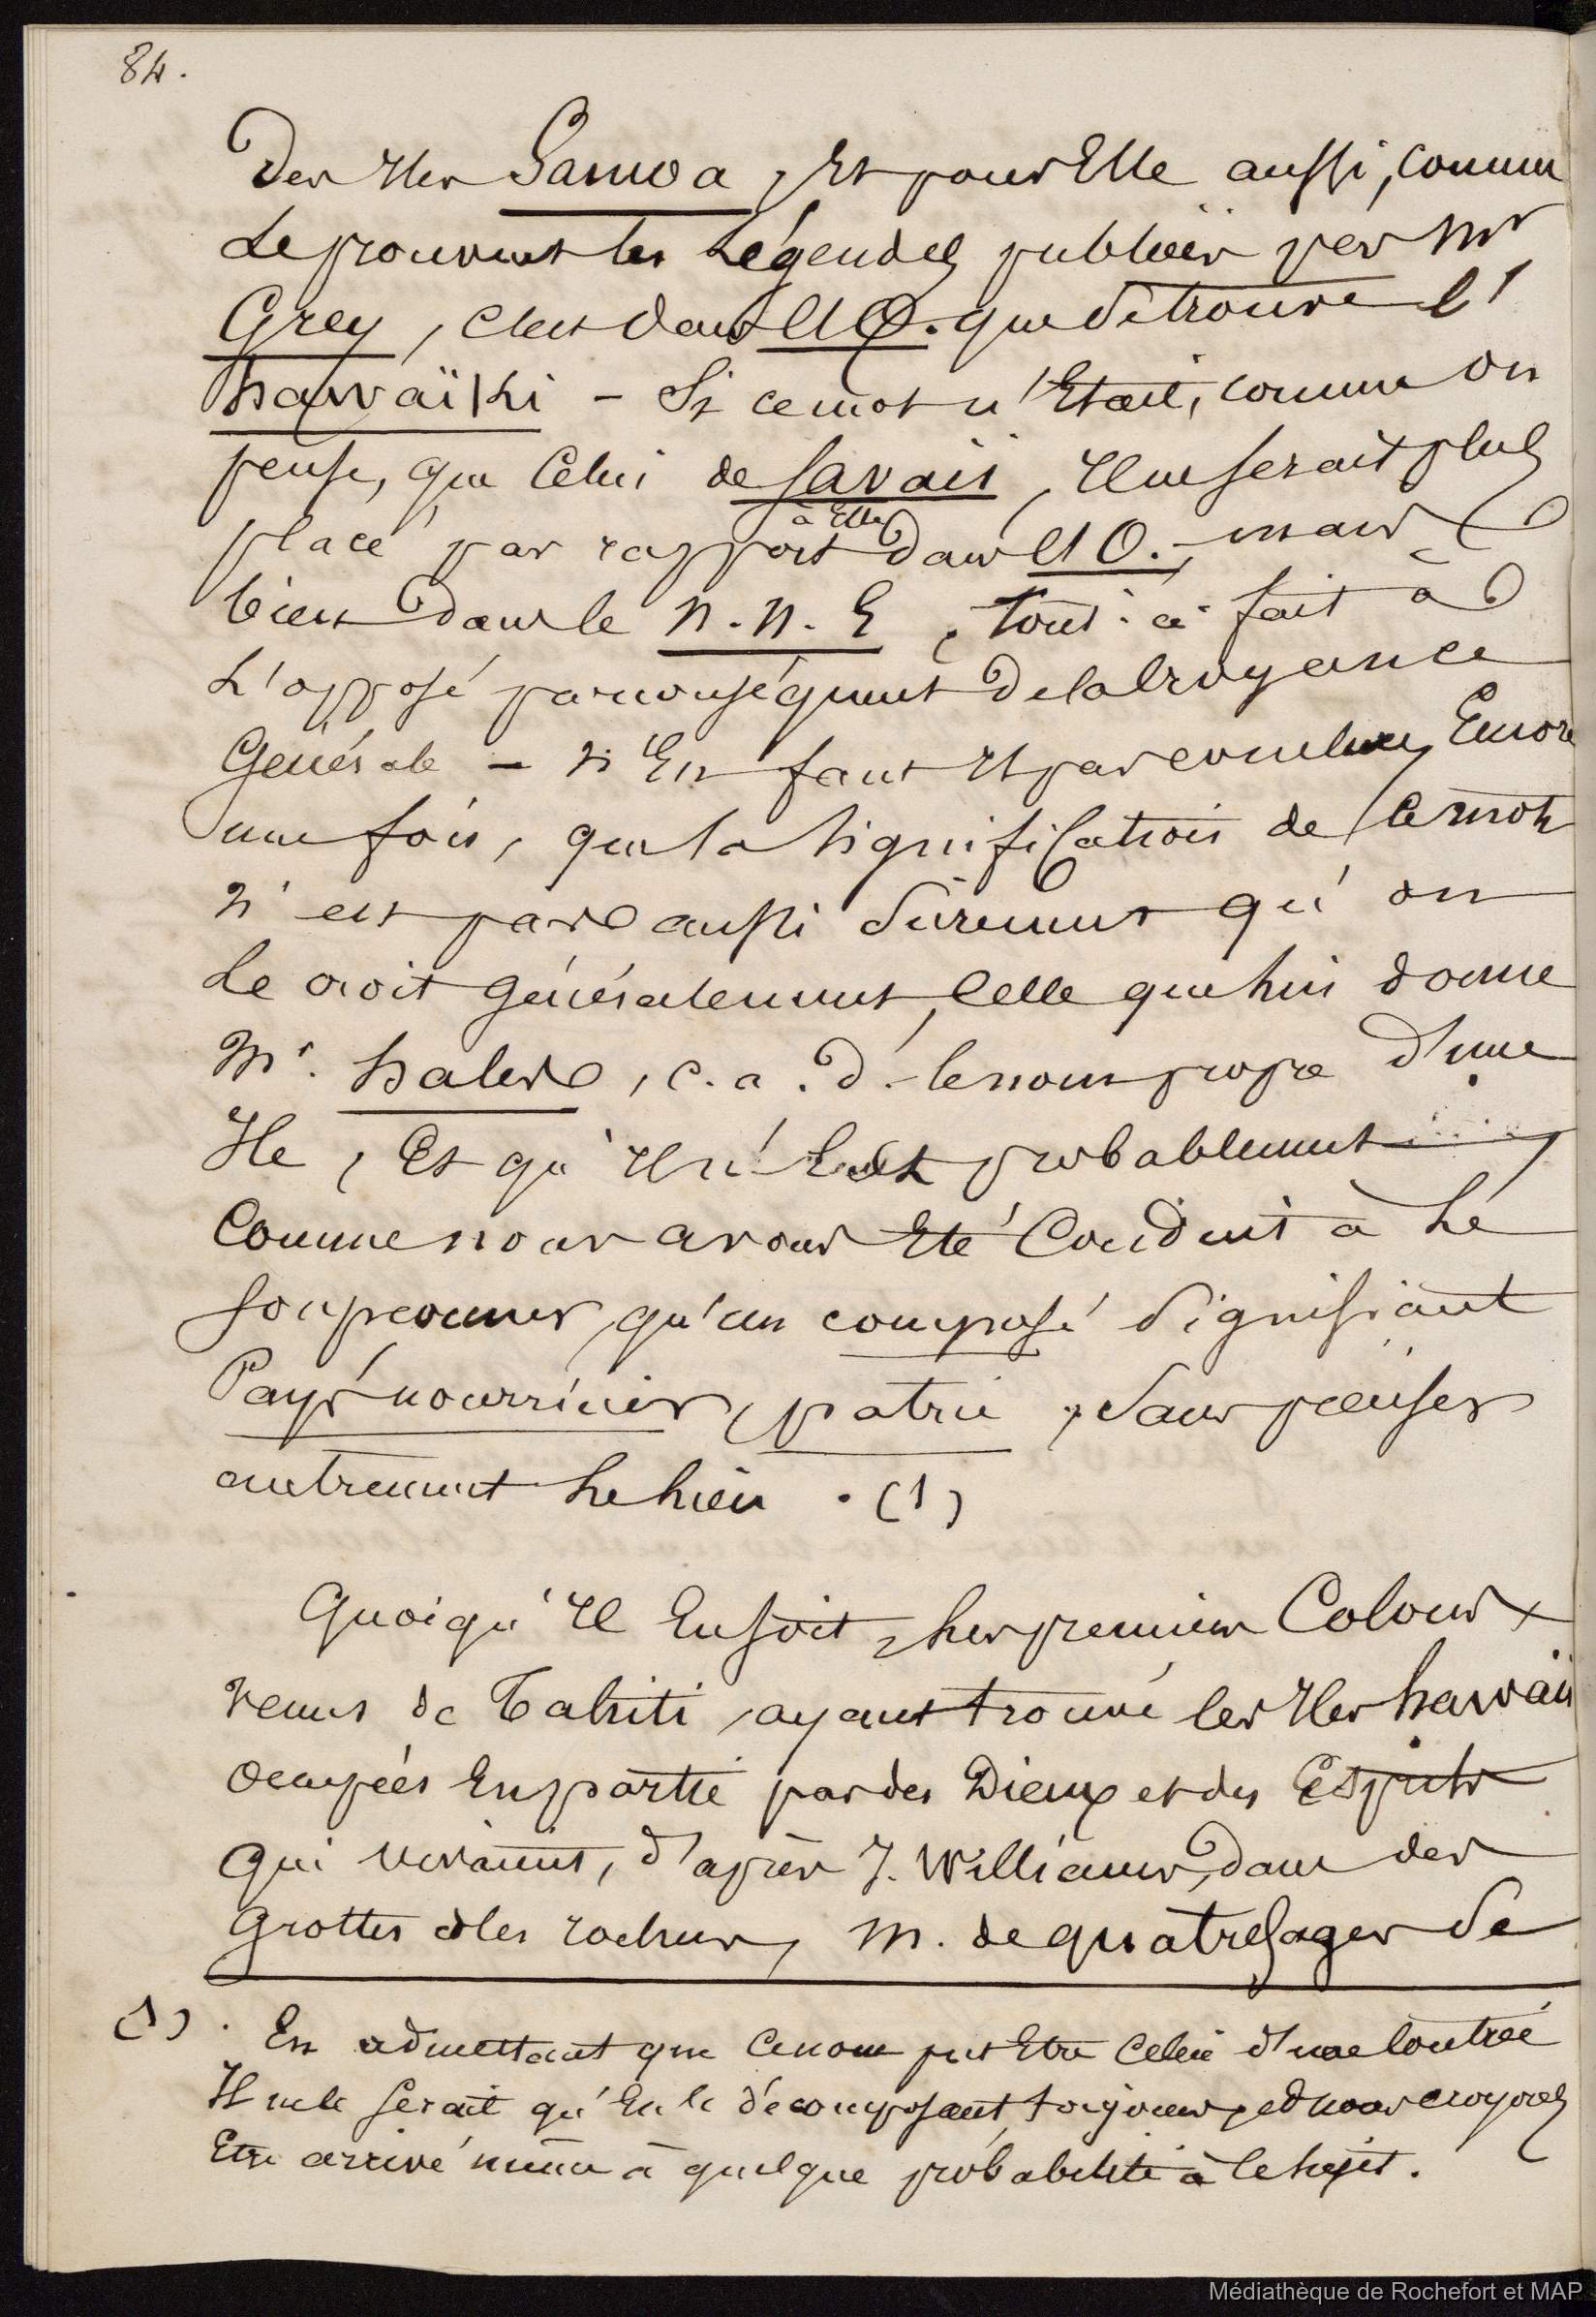 84.
Des Iles Samoa, Et pour Elle aussi, comme
Le prouvent les Légendes publiées par Mr
Grey, c'est dans l'O. que se trouve l'
hawaïki - Si ce mot n'Etait, comme on
pense, que Celui de Savaii, Il ne serait plus
placé par rapport à Elle dans l'O., mais
bien dans le N. N. E, tout-à-fait à
L'opposé par conséquent de la Croyance
Générale - N'En faut Il pas conclure, Encore
une fois, que la signification de ce mot
n'est pas aussi sûrement qu'on
Le croit généralement, Celle que lui donne
Mr. hales, c. a. d. le nom propre d'une
Ile, Et qu'Il n'Est probablement
Comme nous avons Eté Conduit à Le
soupconner, qu'un composé signifiant
Pays nourricier, patrie, sans penser
autrement
(1)
Quoiqu'Il En soit, Les premiers Colons
venus de Tahiti, ayant trouvé les Iles hawaii
occupées En partie par des Dieux et des Esprits
qui vivaient, d'après J. Williams, dans des
Grottes des rochers, M. de quatrefages se
(1). En admettant que ce nom put Etre Celui d'une Contrée
Il ne le serait qu'En le décomposant toujours, nous croyons
Etre arrivé même à quelque probabilité à ce sujet.
Médiathèque de Rochefort et MAP